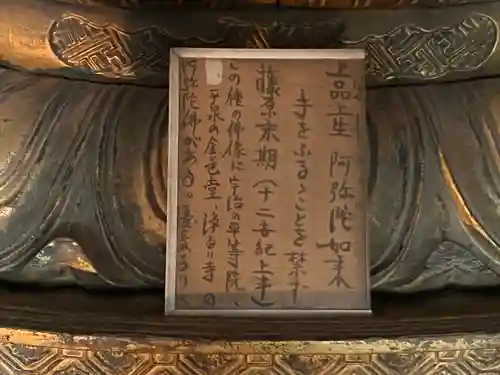 上品上生 阿弥陀如来
手をふるゝことを禁ず
藤原末期（十二世紀上半）
この種の佛像に宇治の平等院、
平泉の金色堂 浄るり寺の
阿弥陀佛がある。